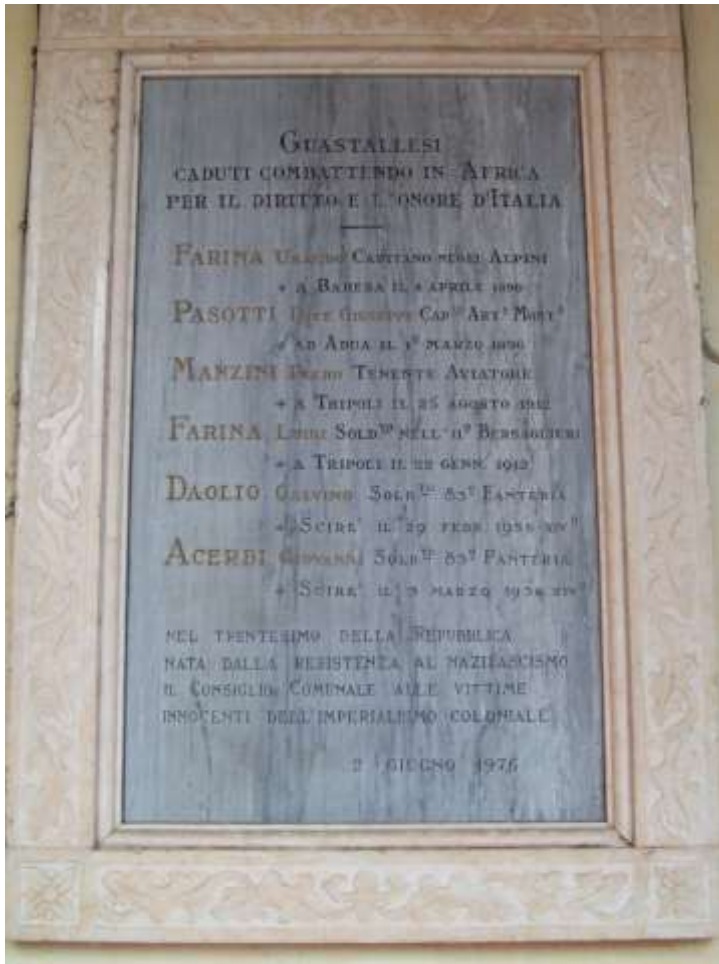 Guastallesi
caduti combattendo in Africa
per il diritto e l'onore d'Italia
Farina Capitano negli Alpini
+ a il aprile
Pasotti Giuseppe Cap.no Art.a Mont.a
+ ad Adua il 1° marzo 1896
Manzini Tenente Aviatore
+ a Tripoli il 25 agosto 1912
Farina Luigi Sold.to nell' 11° Bersaglieri
+ a Tripoli il 22 genn. 1912
Daolio Calvino Sold.to 83° Fanteria
+ Scirè il 29 febb. 1936 XIV°
Acerbi Giovanni Sold.to 83° Fanteria
+ Scirè il 3 marzo 1936 XIV°
nel trentesimo della Repubblica
nata dalla resistenza al nazifascismo
il Consiglio Comunale alle vittime
innocenti dell'imperialismo coloniale
2 giugno 1976